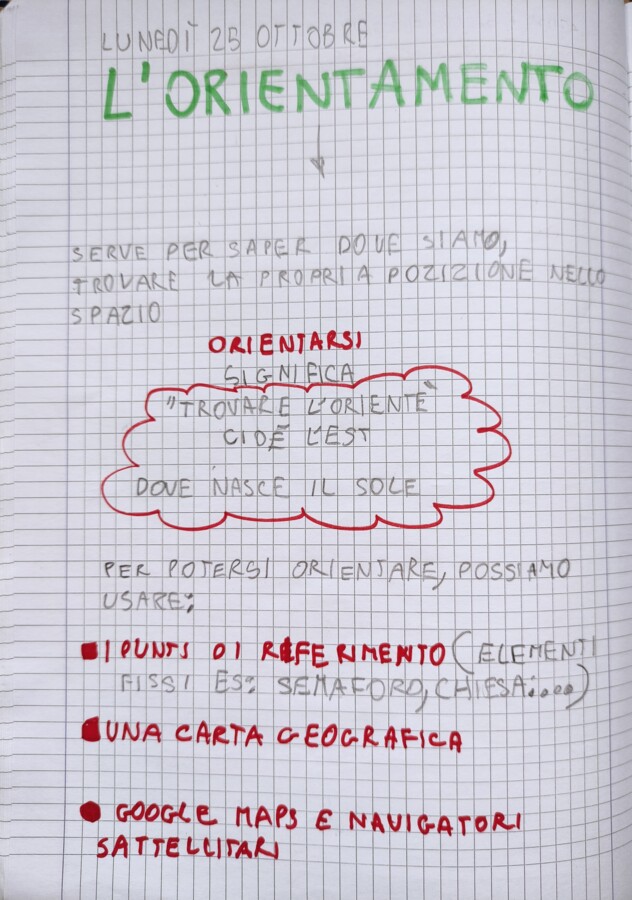 LUNEDÌ 25 OTTOBRE
L'ORIENTAMENTO
SERVE PER SAPER DOVE SIAMO,
TROVARE LA PROPRIA POZIZIONE NELLO
SPAZIO
ORIENTARSI
SIGNIFICA
"TROVARE L'ORIENTE"
CIOÈ L'EST
DOVE NASCE IL SOLE
PER POTERSI ORIENTARE, POSSIAMO
USARE:
I PUNTI DI RIFERIMENTO (ELEMENTI
FISSI ES: SEMAFORO, CHIESA....)
UNA CARTA GEOGRAFICA
GOOGLE MAPS E NAVIGATORI
SATTELLITARI